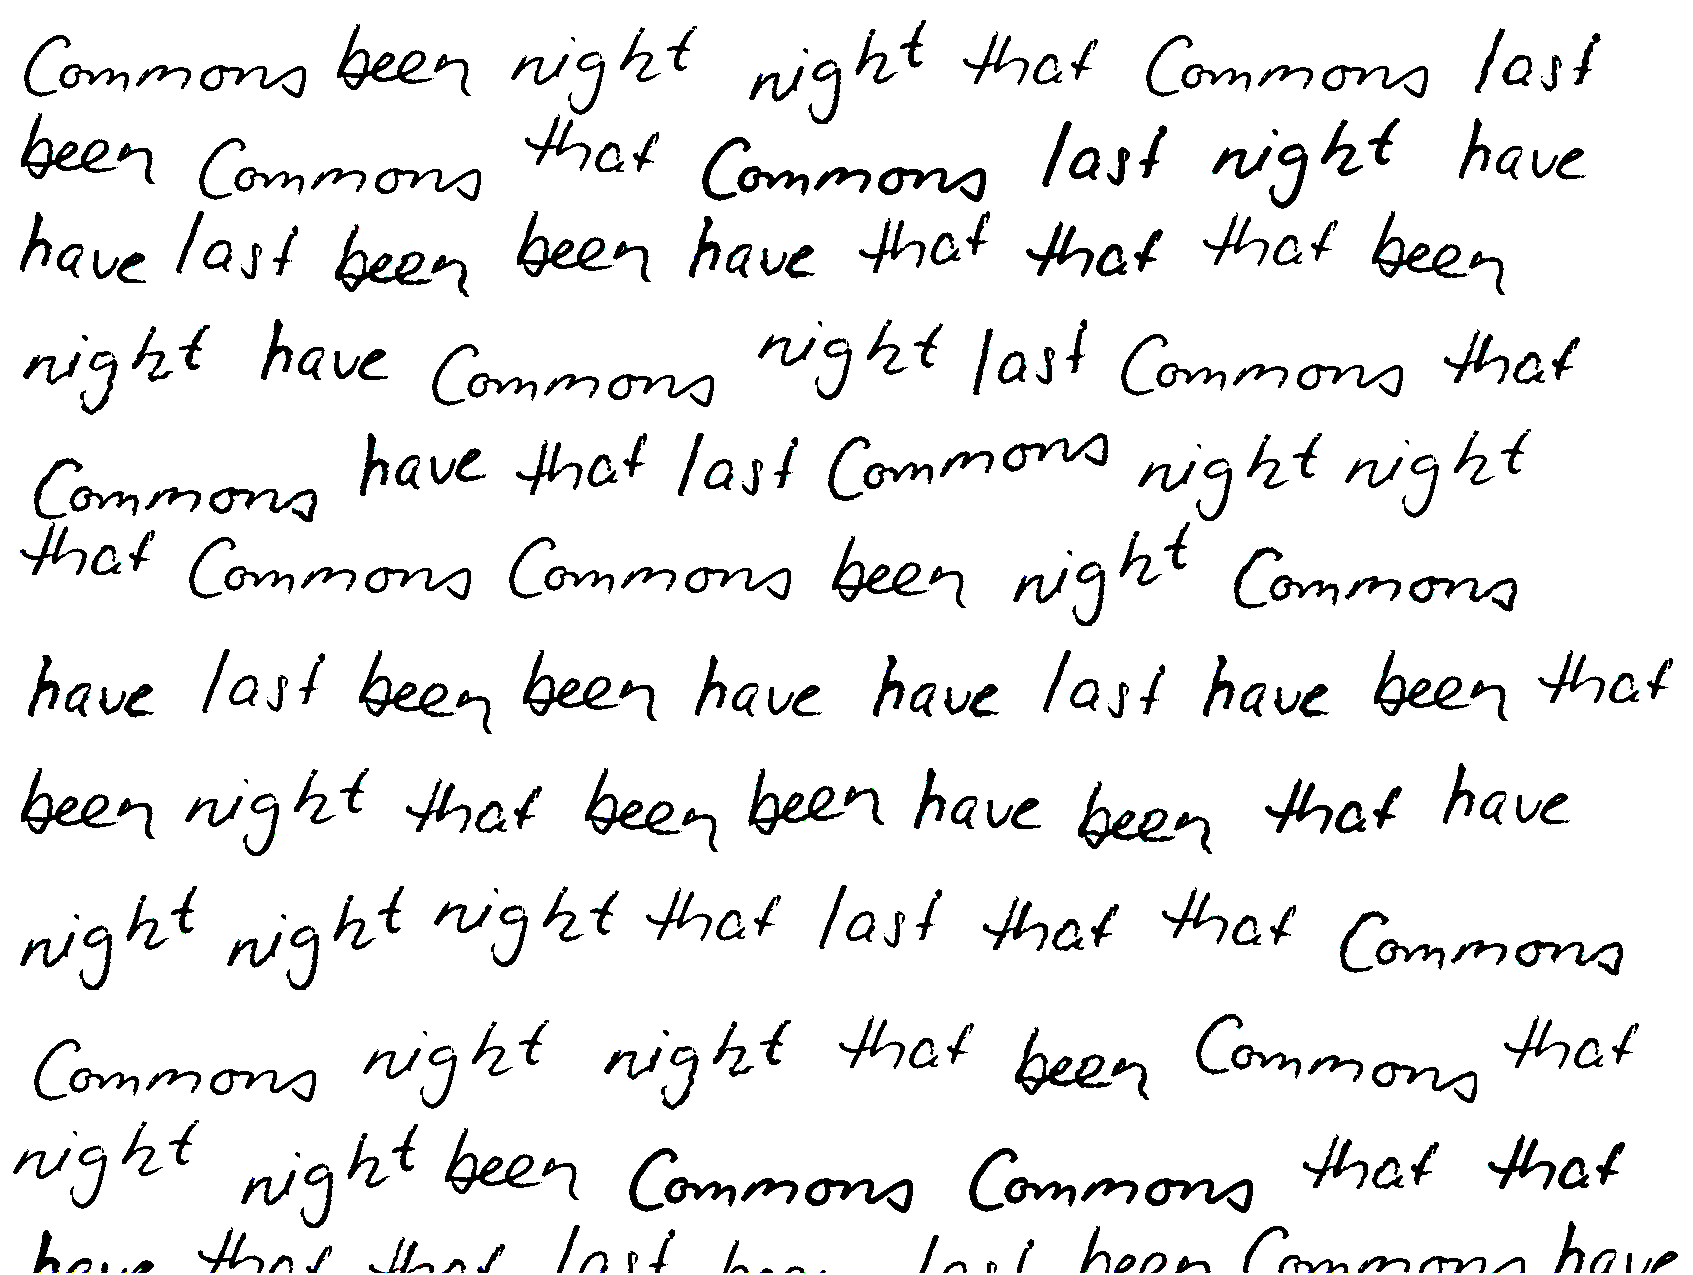 Commons been night night that Commons last
been Commons that Commons last night have
have last been been have that that that been
night have Commons night last Commons that
Commons have that last Commons night night
that Commons Commons been night Commons
have last been been have have last have been that
been night that been been have been that have
night night night that last that that Commons
Commons night night that been Commons that
night night been Commons Commons that that
have that that last been last been Commons have